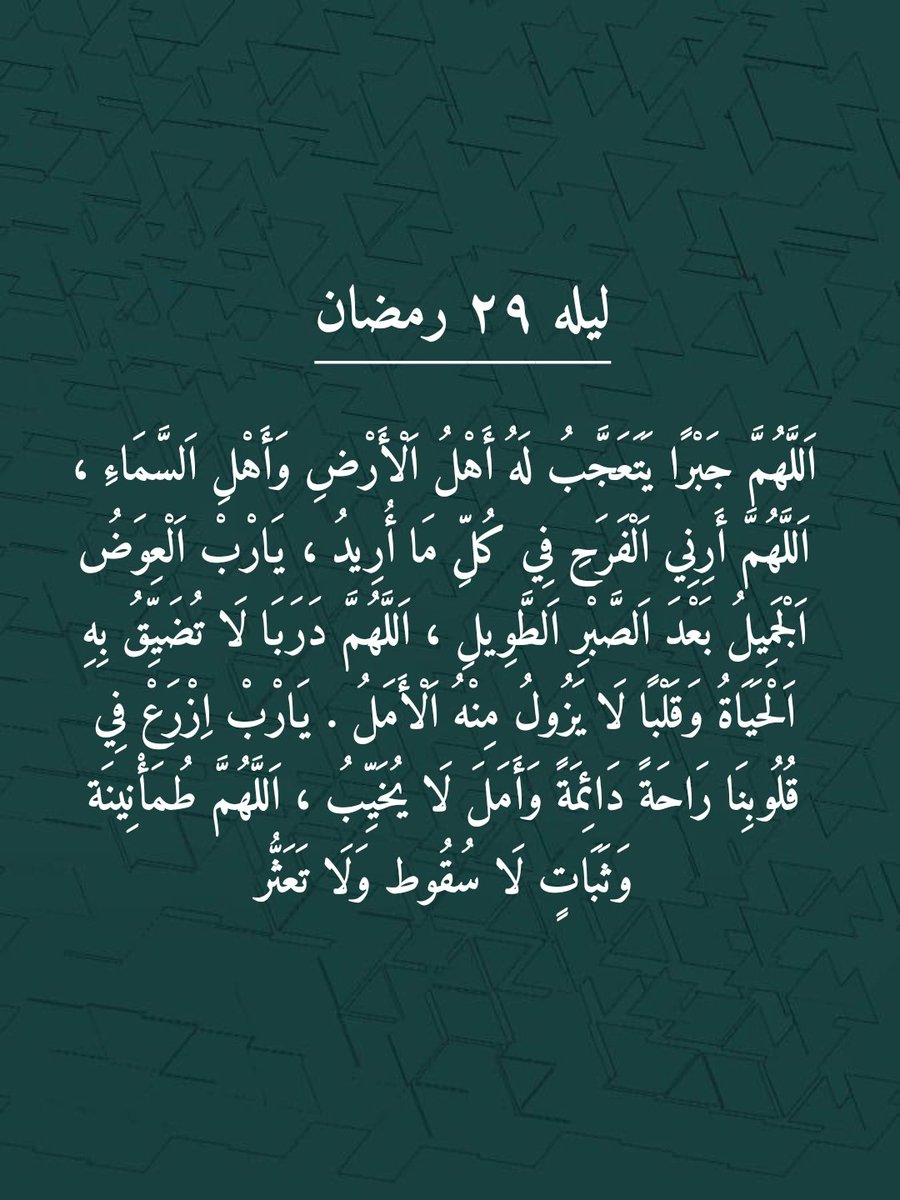 ليله ٢٩ رمضان
اَللَّهُمَّ جَبْرًا يَتَعَجَّبُ لَهُ أَهْلُ اَلْأَرْضِ وَأَهْلِ اَلسَّمَاءِ ،
اَللَّهُمَّ أَرِنِي اَلْفَرَحِ فِي كُلِّ مَا أُرِيدُ ، يَارْبْ اَلْعِوَضُ
اَلْجَمِيلُ بَعْدَ اَلصَّبْرِ اَلطَّوِيلِ ، اَللَّهُمَّ دَرَبَا لَا تُضَيِّقُ بِهِ
اَلْحَيَاةُ وَقَلْبًا لَا يَزُولُ مِنْهُ اَلْأَمَلُ . يَارْبْ اِزْرَعْ فِي
قُلُوبِنَا رَاحَةً دَائِمَةً وَأَمَلَ لَا يُخَيِّبُ ، اَللَّهُمَّ طُمَأْنِينَة
وَثَبَاتٍ لَا سُقُوط وَلَا تَعَثُّر